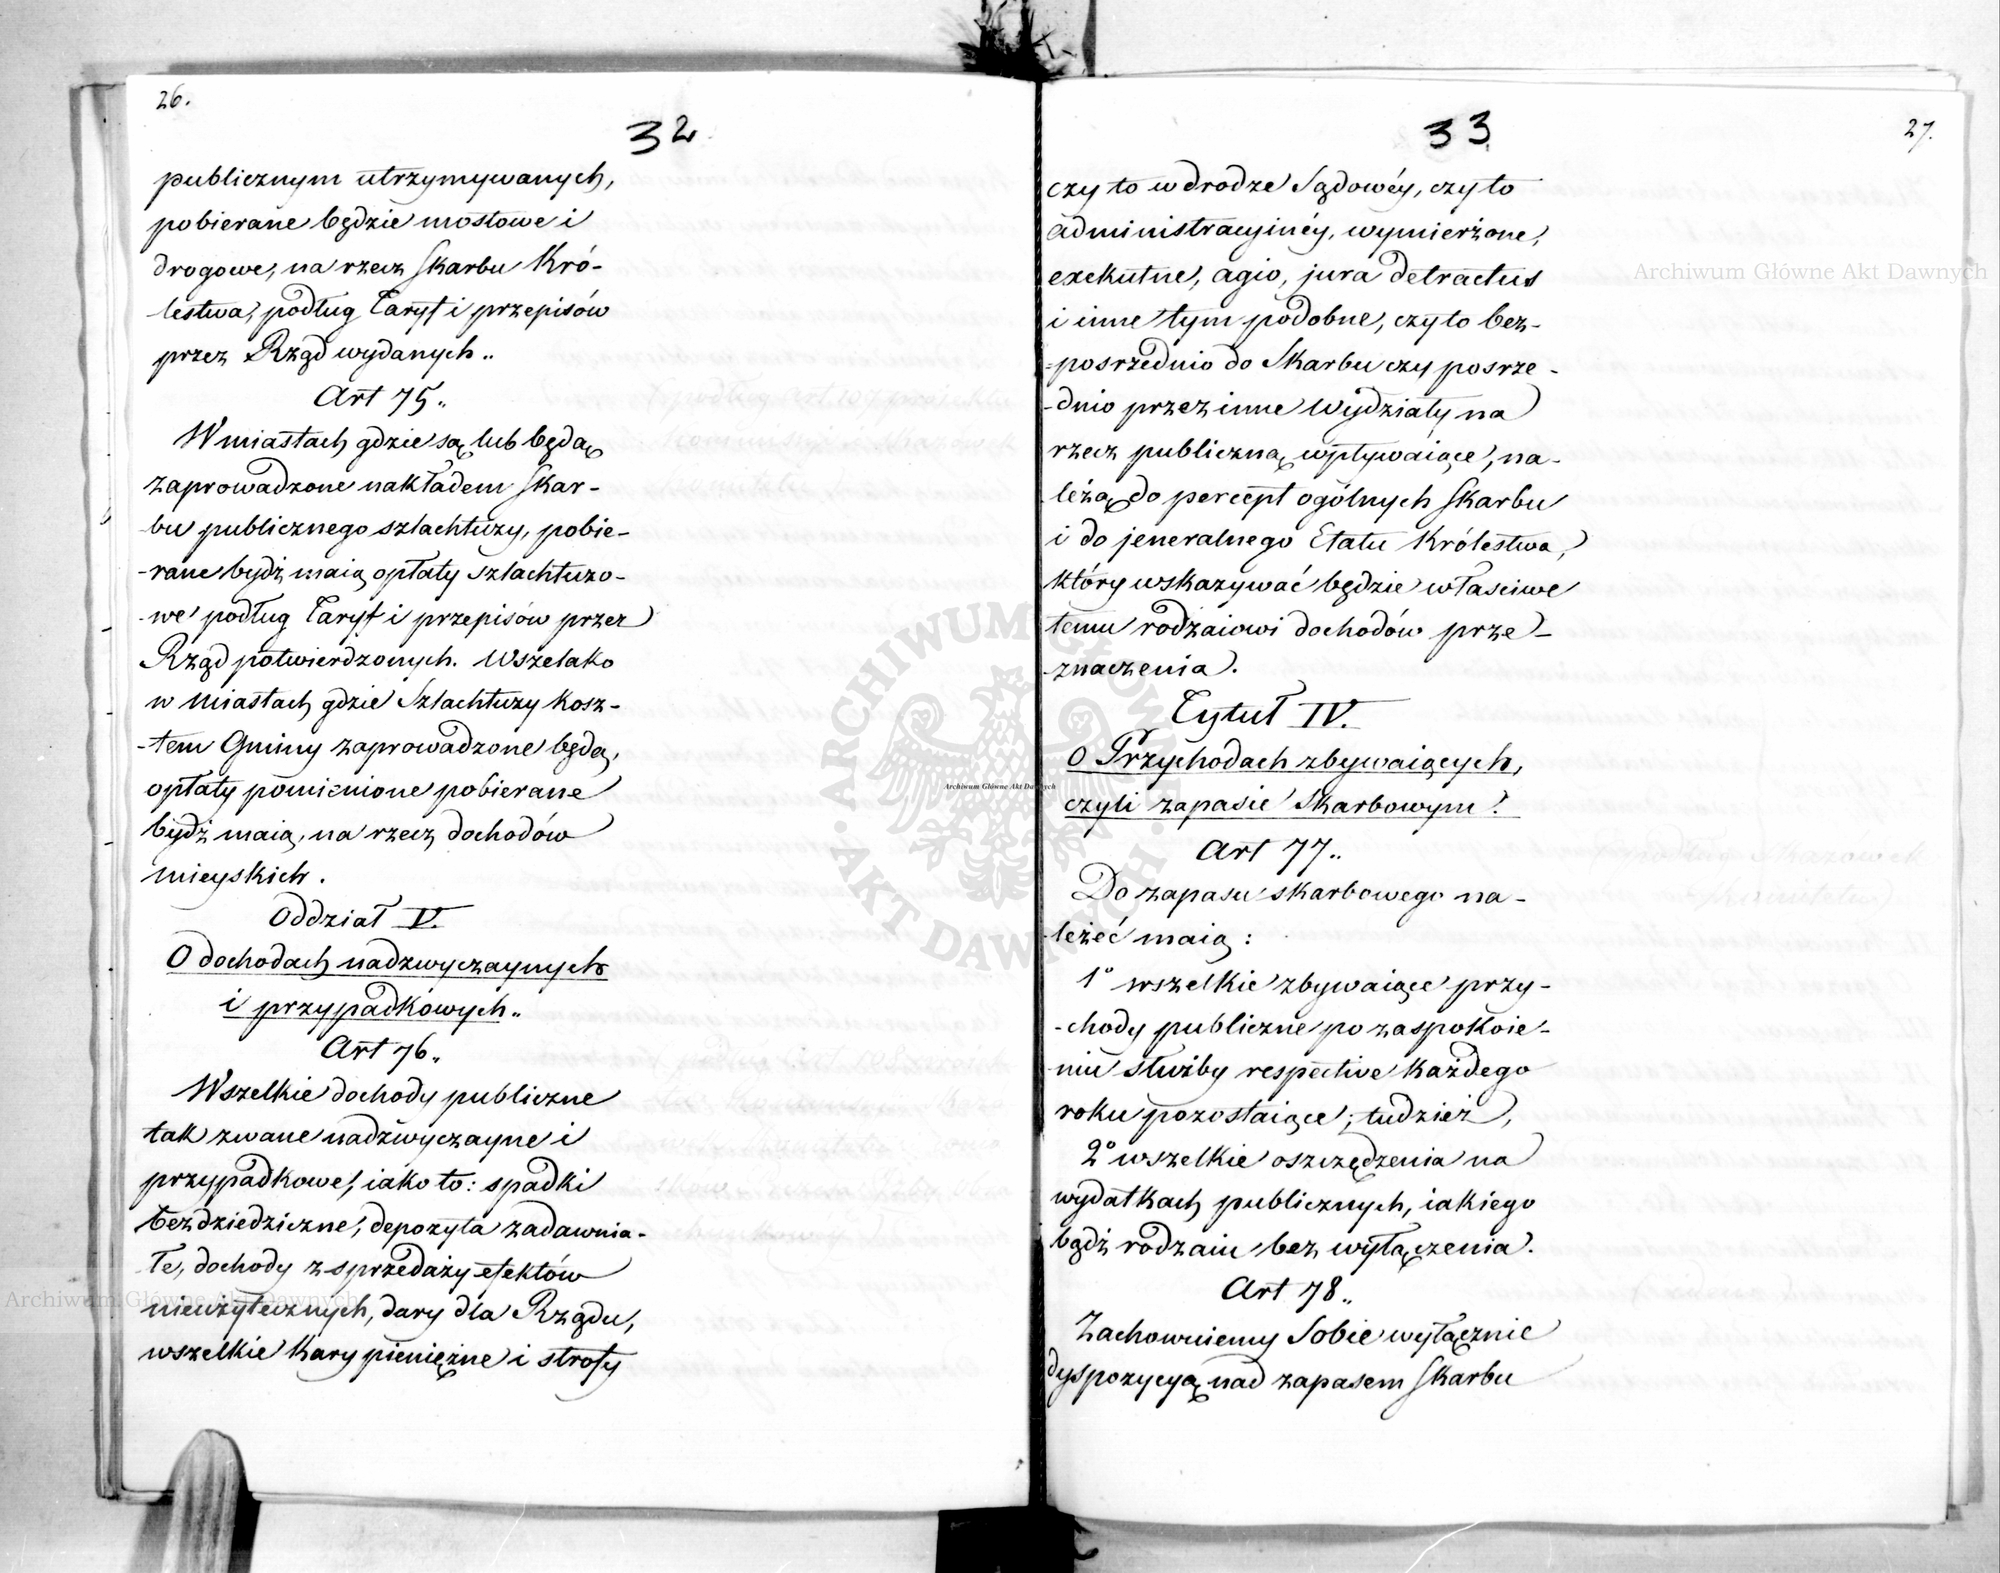 26.
32
publicznym utrzymywanych,
pobierane będzie mostowe i
drogowe, na rzecz Skarbu Kró-
lestwa, podług Taryf i przepisów
przez Rząd wydanych..
Art 75..
W miastach gdzie są, lub będą
zaprowadzone nakładem Skar-
-bu publicznego szlachtuzy, pobie-
-rane bydź maią opłaty szlachtuzo-
-we podług Taryf i przepisów przez
Rząd potwierdzonych. Wszelako
w miastach gdzie Szlachtuzy kosz-
-tem Gminy zaprowadzone będą,
opłaty pomienione pobierane
bydź maią, na rzecz dochodów
mieyskich.
Oddział V.
O dochodach nadzwyczaynych
i przypadkowych..
Art 76..
Wszelkie dochody publiczne
tak zwane nadzwyczayne i
przypadkowe, iako to: spadki
bezdziedziczne, depozyta zadawnia-
łe, dochody z sprzedaży efektów
nieużytecznych, dary dla Rządu,
wszelkie kary pieniężne i strofy
33
27.
czy to w drodze Sądowéy, czy to
administracyinéy, wymierżone,
exekutne, agio, jura detractus
i inne tym podobne, czy to bez-
-posrzednio do Skarbu czy posrze-
-dnio przez inne Wydziały na
rzecz publiczną wpływaiące, na-
leżą do percept ogólnych Skarbu
i do jeneralnego Etatu Królestwa,
który wskazywać będzie właściwe
temu rodzaiowi dochodów prze-
-znaczenia.
Tytuł IV.
O Przychodach zbywaiących,
czyli zapasie Skarbowym.
Art 77..
Do zapasu skarbowego na-
leżeć maią:
1° wszelkie zbywaiące przy-
-chody publiczne po zaspokoie-
-niu służby respective każdego
roku pozostaiące; tudzież,
2° wszelkie oszczędzenia na
wydatkach publicznych, iakiego
bądź rodzaiu bez wyłączenia.
Art 78..
Zachowuiemy Sobie wyłącznie
dyspozycyą nad zapasem Skarbu
Archiwum Główne Akt Dawnych
Archiwum Główne Akt Dawnych
Archiwum Główne Akt Dawnych
ARCHIWUM GŁÓWNE AKT DAWNYCH